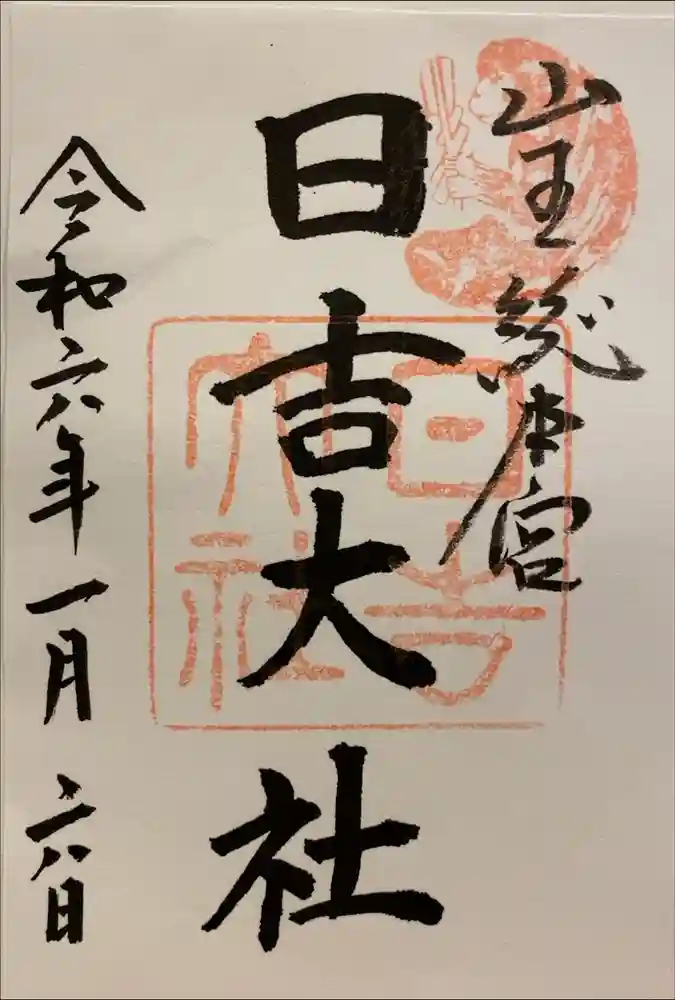 山王総本宮
日吉大社
日吉大社
令和六年一月六日